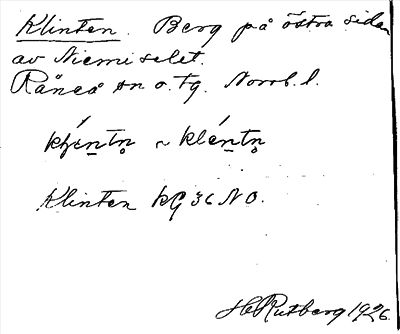 Klinten. Berg på östra sidan
av Niemiselet.
Råneå sn o. tg. Norrb. l.
Klinten kG 36 NO.
H Rutberg 1926.